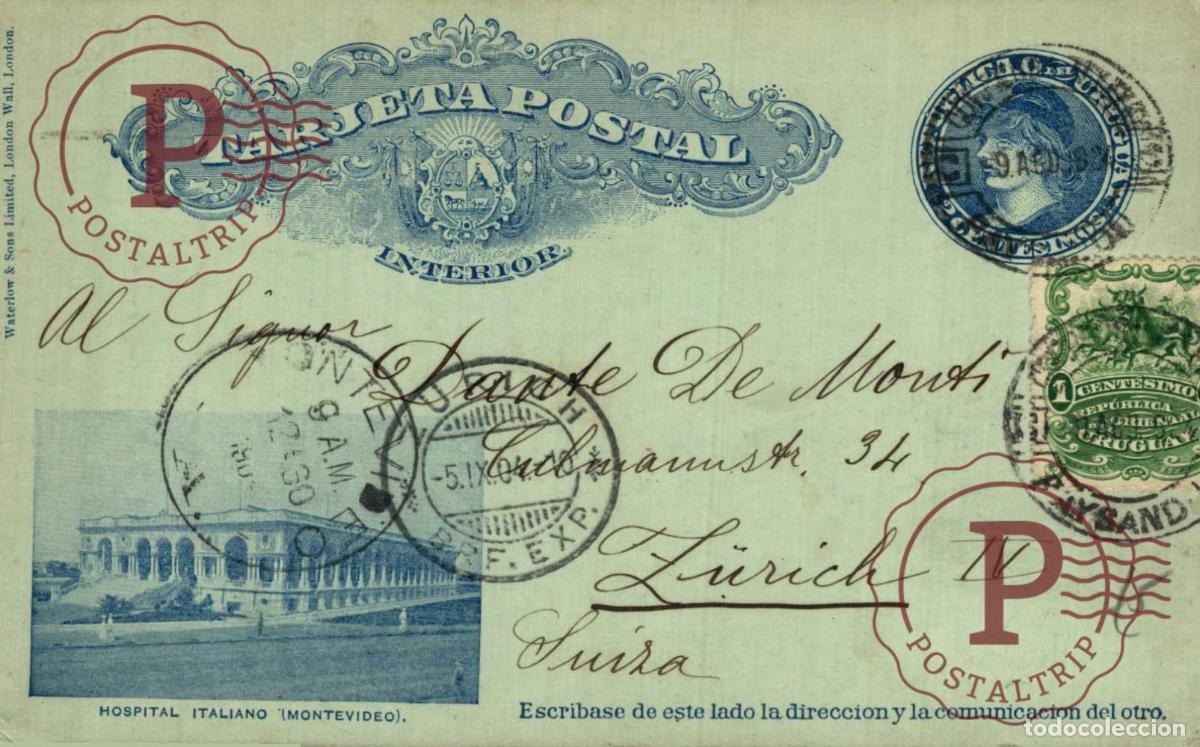 Waterlow & Sons Limited, London Wall, London.
TARJETA POSTAL
INTERIOR.
REPUBLICA O. DEL URUGUAY
2 CENTESIMOS
9 AGO
Al Signor
Dante De Monti
Culmannstr. 34
Zürich IV
Suiza
MONTEVIDEO
9 A.M.
12 AGO
ZÜRICH
-5.IX.04.-10
BRF. EXP.
1 CENTÉSIMO
REPÚBLICA
ORIENTAL
URUGUAY
PAYSANDU
HOSPITAL ITALIANO (MONTEVIDEO).
Escribase de este lado la direccion y la comunicacion del otro.
P
POSTALTRIP
P
POSTALTRIP
todocoleccion